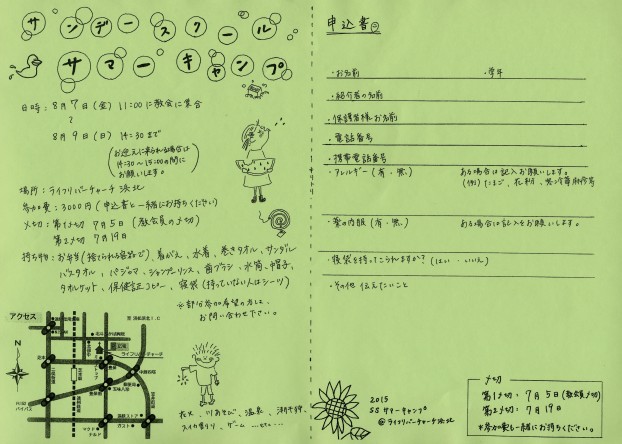 サンデースクール
サマーキャンプ
日時：8月7日(金) 11:00に教会に集合
〜
8月9日(日) 14:30まで
(お迎えに来られる場合は
14:30〜15:00の間に
お願いします。)
場所：ライフリバーチャーチ浜北
参加費：3000円 (申込書と一緒にお持ちください)
〆切：第1〆切 7月5日 (教会員の〆切)
第2〆切 7月19日
持ち物：お弁当(捨てられる容器で)、着がえ、水着、巻きタオル、サンダル
バスタオル、パジャマ、シャンプーリンス、歯ブラシ、水筒、帽子、
タオルケット、保健証コピー、寝袋(持っていない人はシーツ)
※部分参加希望の方は、
お問い合わせ下さい。
アクセス
N
ライフリバーチャーチ
花火、川あそび、温泉、
スイカ割り、ゲーム …etc…
申込書
・お名前 ・学年
・紹介者の名前
・保護者様お名前
・電話番号
・携帯電話番号
・アレルギー (有・無) ある場合は記入お願いします。
(例) たまご、花粉、
・薬の内服 (有・無) ある場合は記入をお願いします。
・寝袋を持ってこられますか？ (はい・いいえ)
・その他 伝えたいこと
2015
SS サマーキャンプ
@ライフリバーチャーチ浜北
〆切
第1〆切・7月5日 (教会員〆切)
第2〆切・7月19日
＊参加費も一緒にお持ちください。